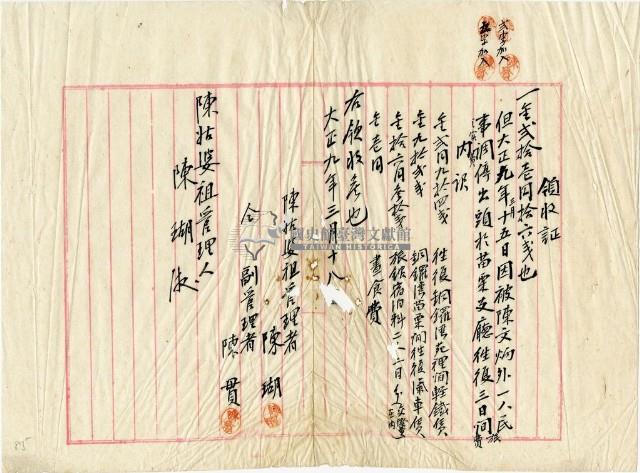 貳字加入
五字加入
領收証
一金貳拾壱円拾六戔也
但大正九年三月十五日因被陳文炳外一人民
事調停出頭於苗栗支廳往復三日間旅費
之實費
内訳
金貳円九拾四戔 往復銅鑼湾苑裡間軽鉄賃
金九拾貳戔 銅鑼湾苗栗間往復汽車賃
金拾六円参拾戔 旅館宿泊料二人三日分
金壱円 晝食費
右領收候也
大正九年三月十八
陳姑婆祖管理者 陳瑚
仝 副管理者 陳貫
陳姑婆祖管理人
陳瑚
國史館臺灣文獻館
TAIWAN HISTORICA